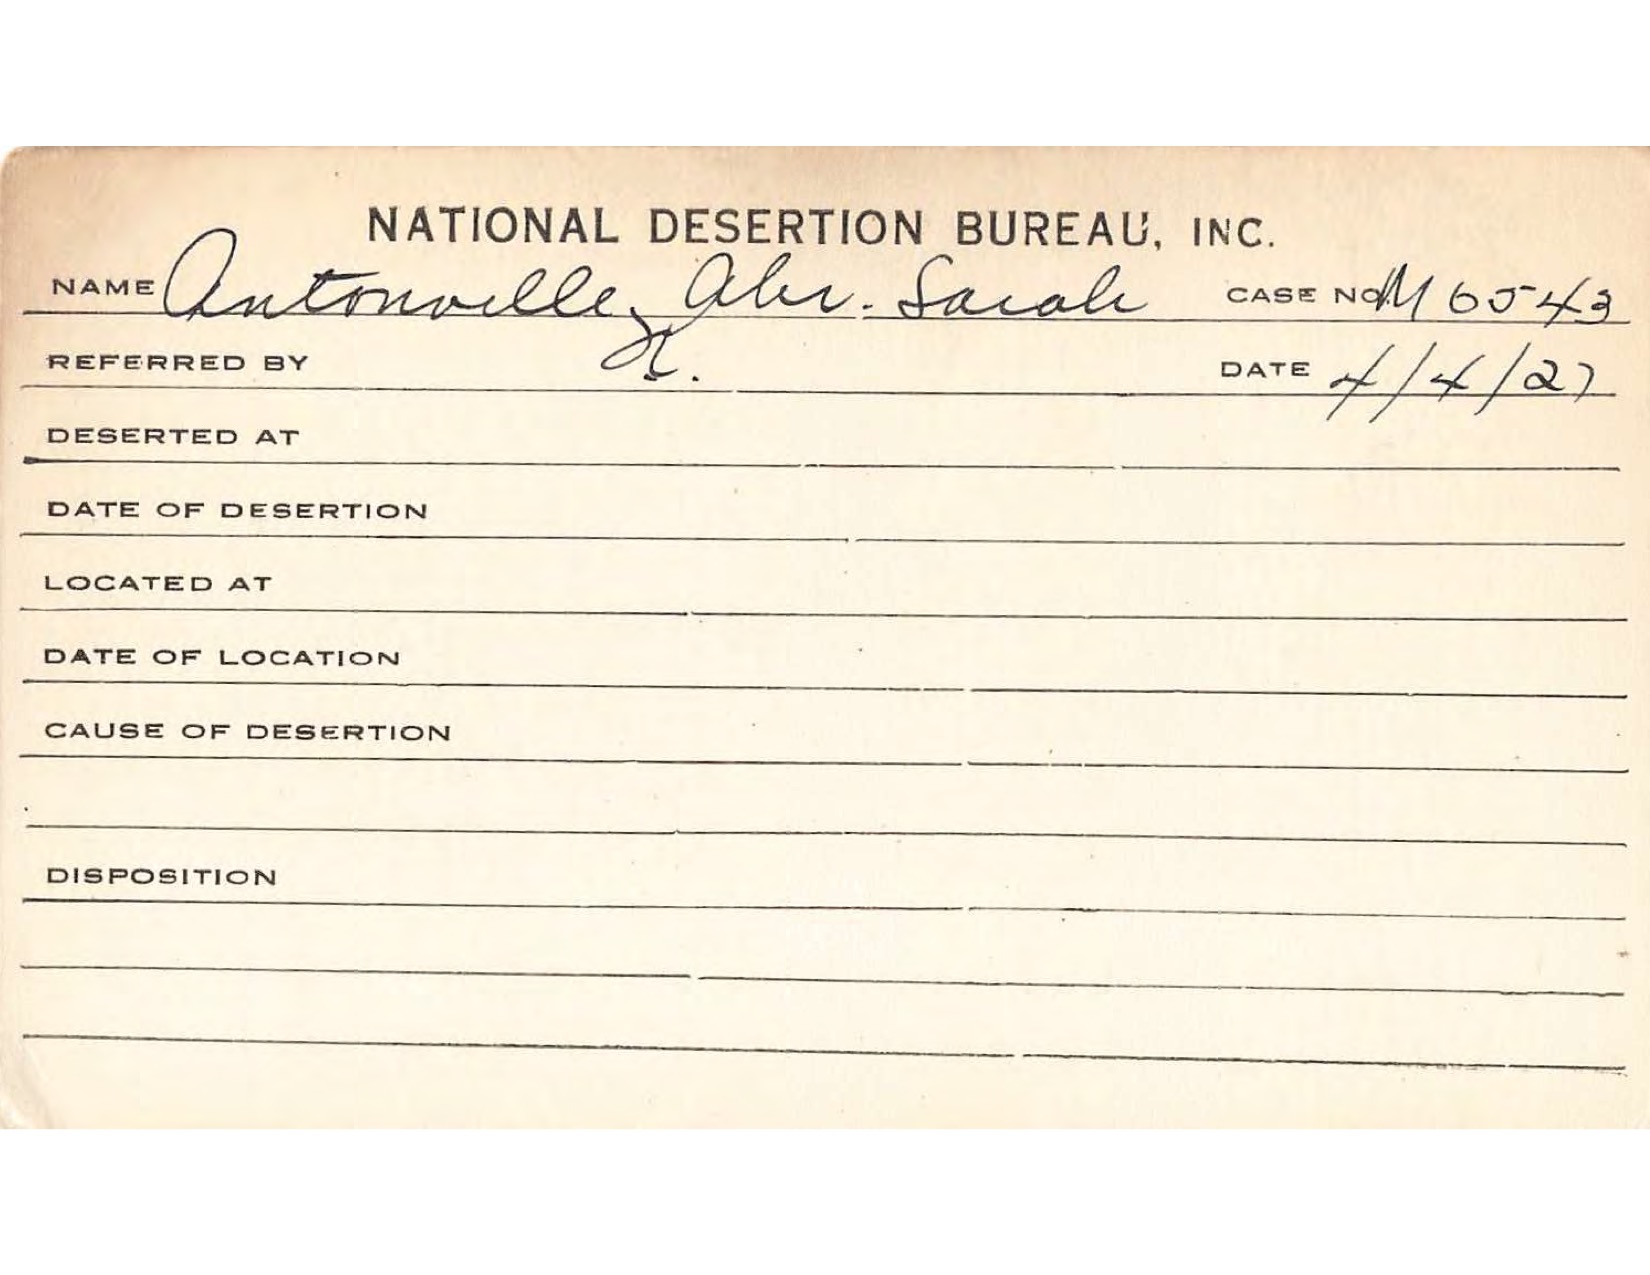 NATIONAL DESERTION BUREAU, INC.
NAME Antonville, Abr. Sarah CASE NO. M 6543
REFERRED BY DATE 4/4/27
DESERTED AT
DATE OF DESERTION
LOCATED AT
DATE OF LOCATION
CAUSE OF DESERTION
DISPOSITION